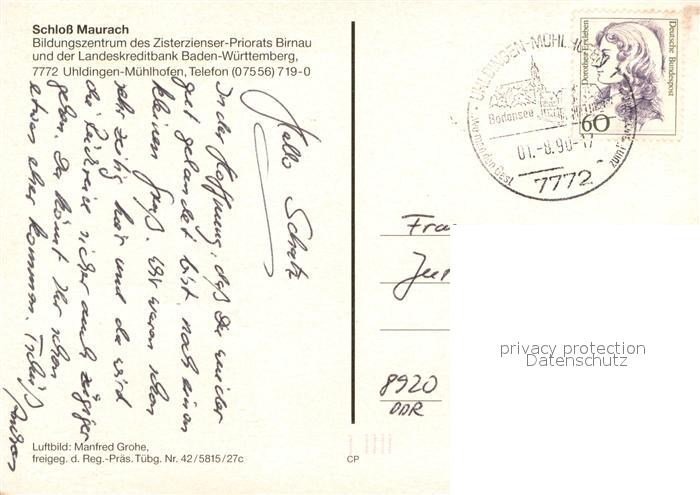 Schloß Maurach
Bildungszentrum des Zisterzienser-Priorats Birnau
und der Landeskreditbank Baden-Württemberg,
7772 Uhldingen-Mühlhofen, Telefon (07556) 719-0
Hallo Schatz
In der Hoffnung, daß Du wieder
gut gelandet bist noch einen
kleinen Gruß. Wir waren schon
sehr zeitig hier und da wird
die Rückreise sicher auch zügiger
gehen. Da könnt Ihr schon
etwas eher kommen. Tschüß
Andreas
Luftbild: Manfred Grohe,
freigeg. d. Reg.-Präs. Tübg. Nr. 42/5815/27c
CP
UHLDINGEN-MÜHLHOFEN
Bodensee
01.-8.90-17
7772
Dorothea Erxleben
Deutsche Bundespost
60
Frau
8920
DDR
privacy protection
Datenschutz